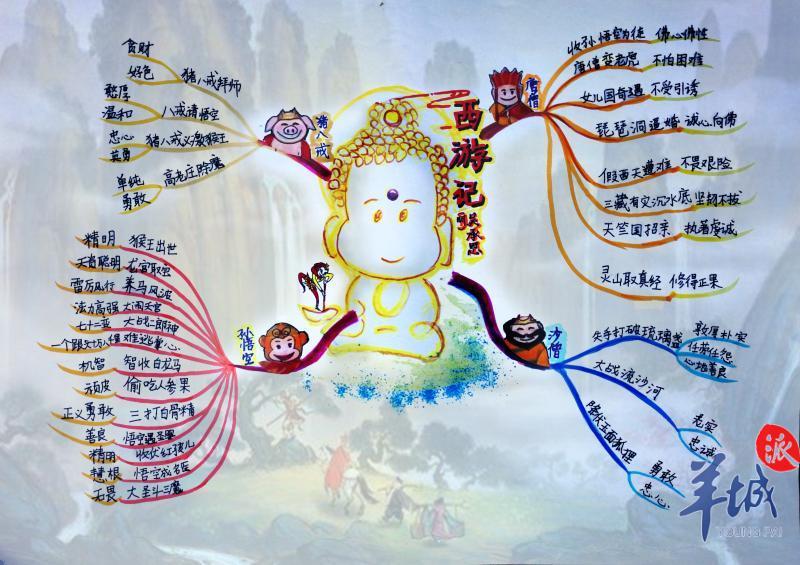 西游记
吴承恩
猪八戒
贪财
好色
猪八戒拜师
憨厚
温和
八戒请悟空
忠心
英勇
猪八戒义激猴王
单纯
勇敢
高老庄除魔
唐僧
收孙悟空为徒 佛心佛性
唐僧变老虎 不怕困难
女儿国奇遇 不受引诱
琵琶洞逼婚 诚心向佛
假西天遭难 不畏艰险
三藏有灾沉水底 坚韧不拔
天竺国招亲 执着虔诚
灵山取真经 修得正果
孙悟空
精明 猴王出世
天肖聪明 龙宫取宝
雷厉风行 养马风波
法力高强 大闹天宫
七十二变 大战二郎神
难逃掌心
机智 智收白龙马
顽皮 偷吃人参果
正义勇敢 三打白骨精
善良 悟空遇圣婴
精明 收伏红孩儿
慧根 悟空成名医
无畏 大圣斗三魔
沙僧
失手打破琉璃盏
敦厚朴实
任劳任怨
心地善良
大战流沙河
老实
忠诚
降伏玉面狐狸
勇敢
忠心
羊城
派
YOUNG PAI